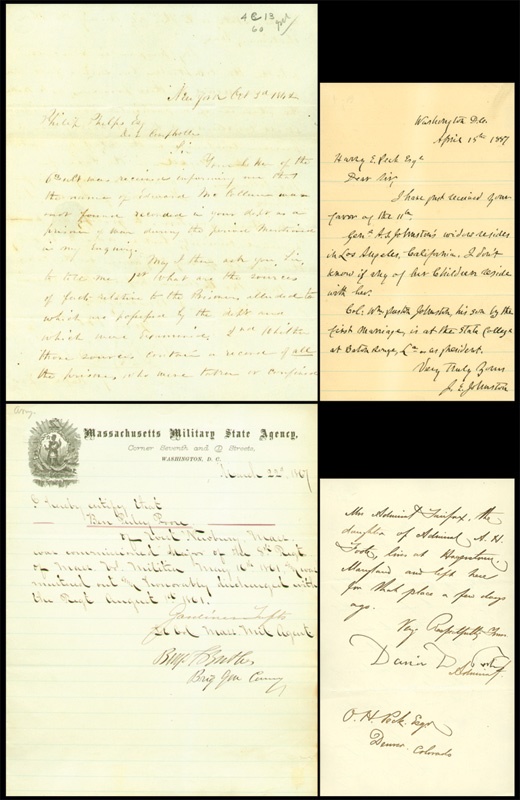 4 C 13
60
New York Oct 3d 186
Philip Phelps Esq
Sir
Your letter of the
was received informing me that
the name of Edward
not found recorded in your dept as a
prisoner of war during the period mentioned
in my enquiry.
May I then ask you, Sir,
to tell me 1st What are the sources
of facts relative to the Prisoners alluded to
which are possessed by the dept and
which were examined. 2nd Whether
these sources contain a record of all
the prisoners, who were taken or confined
Washington D.C.
April 15th 1887
Harry E Peck Esqr
Dear Sir
I have just received your
favor of the 11th.
Genl A.S. Johnston's widow resides
in Los Angeles, California. I don't
know if any of her children reside
with her.
Col. Wm Preston Johnston, his son by the
first marriage, is at the State College
at Baton Rouge, La as president.
Very Truly Yours
J. E. Johnston
Massachusetts Military State Agency,
Corner Seventh and D Streets,
WASHINGTON, D. C.
March 22d 1867
I hereby certify that
Ben Perley Poore
of West Newbury Mass.
was commissioned Major of the 8th Regt
of Mass Vol Militia May 1861
mustered out & honorably discharged with
the Regt August 1st 1861.
Gardiner Tufts
Lt Col Mass Mil Agent
Benj F Butler
Brig Gen Comg
Mrs Admiral Fairfax, the
daughter of Admiral A. H.
Foote, lives at Hagerstown,
Maryland and left here
for that place a few days
ago.
Very Respectfully Yours
David D. Porter
Admiral
O. H. Peck. Esqr
Denver
Colorado